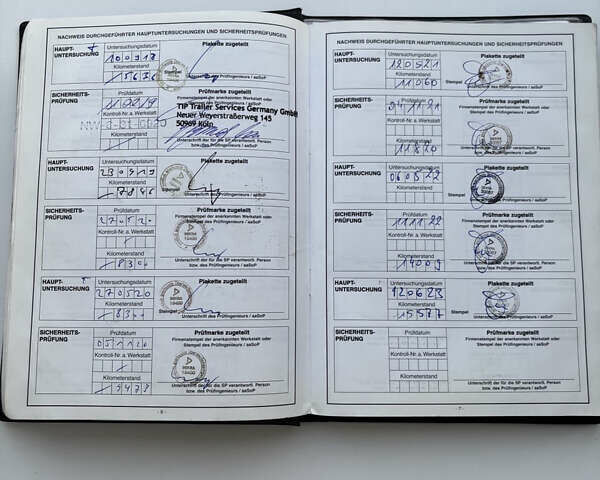 NACHWEIS DURCHGEFÜHRTER HAUPTUNTERSUCHUNGEN UND SICHERHEITSPRÜFUNGEN
HAUPT-
UNTERSUCHUNG
Untersuchungsdatum
Kilometerstand
Plakette zugeteilt
Stempel
Unterschrift des Prüfingenieurs / aaSoP
SICHERHEITS-
PRÜFUNG
Prüfdatum
Kontroll-Nr. a. Werkstatt
Kilometerstand
Prüfmarke zugeteilt
Firmenstempel der anerkannten Werkstatt oder
TIP Trailer Services Germany GmbH
Neuer Weyerstraßerweg 145
50969 Köln
Unterschrift der für die SP verantwortl. Person
bzw. des Prüfingenieurs / aaSoP
HAUPT-
UNTERSUCHUNG
Untersuchungsdatum
230919
Kilometerstand
7846
Plakette zugeteilt
Stempel
Unterschrift des Prüfingenieurs / aaSoP
SICHERHEITS-
PRÜFUNG
Prüfdatum
270520
Kontroll-Nr. a. Werkstatt
Kilometerstand
8306
Prüfmarke zugeteilt
Firmenstempel der anerkannten Werkstatt oder
Stempel des Prüfingenieurs / aaSoP
DEKRA
Unterschrift der für die SP verantwortl. Person
bzw. des Prüfingenieurs / aaSoP
HAUPT-
UNTERSUCHUNG
Untersuchungsdatum
270520
Kilometerstand
Plakette zugeteilt
DEKRA
Stempel
Unterschrift des Prüfingenieurs / aaSoP
SICHERHEITS-
PRÜFUNG
Prüfdatum
051120
Kontroll-Nr. a. Werkstatt
Kilometerstand
Prüfmarke zugeteilt
Firmenstempel der anerkannten Werkstatt oder
Stempel des Prüfingenieurs / aaSoP
DEKRA
Unterschrift der für die SP verantwortl. Person
bzw. des Prüfingenieurs / aaSoP
NACHWEIS DURCHGEFÜHRTER HAUPTUNTERSUCHUNGEN UND SICHERHEITSPRÜFUNGEN
HAUPT-
UNTERSUCHUNG
Untersuchungsdatum
120521
Kilometerstand
11060
Plakette zugeteilt
Stempel
Unterschrift des Prüfingenieurs / aaSoP
SICHERHEITS-
PRÜFUNG
Prüfdatum
041121
Kontroll-Nr. a. Werkstatt
Kilometerstand
11820
Prüfmarke zugeteilt
Firmenstempel der anerkannten Werkstatt oder
Stempel des Prüfingenieurs / aaSoP
Unterschrift der für die SP verantwortl. Person
bzw. des Prüfingenieurs / aaSoP
HAUPT-
UNTERSUCHUNG
Untersuchungsdatum
Kilometerstand
Plakette zugeteilt
Stempel
Unterschrift des Prüfingenieurs / aaSoP
SICHERHEITS-
PRÜFUNG
Prüfdatum
111122
Kontroll-Nr. a. Werkstatt
Kilometerstand
14009
Prüfmarke zugeteilt
Firmenstempel der anerkannten Werkstatt oder
Stempel des Prüfingenieurs / aaSoP
Unterschrift der für die SP verantwortl. Person
bzw. des Prüfingenieurs / aaSoP
HAUPT-
UNTERSUCHUNG
Untersuchungsdatum
120623
Kilometerstand
15577
Plakette zugeteilt
Stempel
Unterschrift des Prüfingenieurs / aaSoP
SICHERHEITS-
PRÜFUNG
Prüfdatum
Kontroll-Nr. a. Werkstatt
Kilometerstand
Prüfmarke zugeteilt
Firmenstempel der anerkannten Werkstatt oder
Stempel des Prüfingenieurs / aaSoP
Unterschrift der für die SP verantwortl. Person
bzw. des Prüfingenieurs / aaSoP
- 7 -